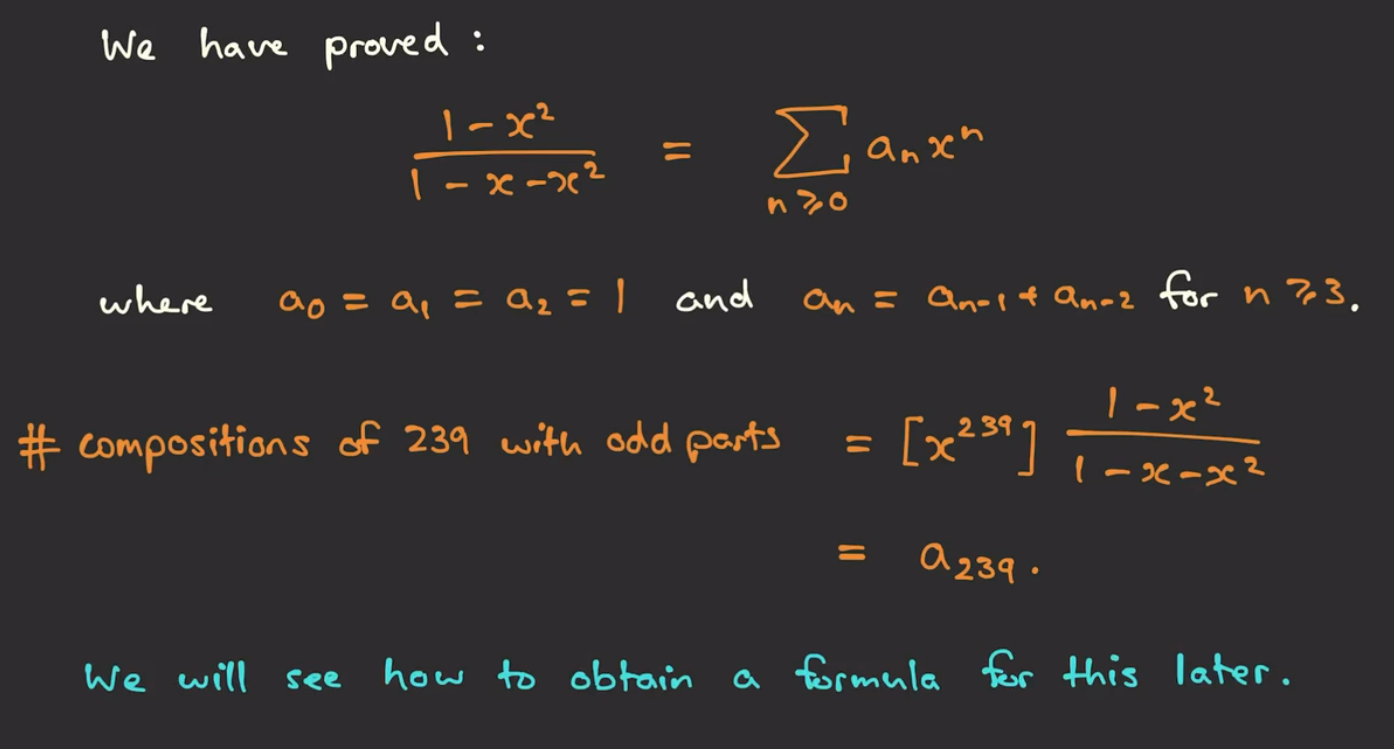 We have proved :
1 - x²
1 - x - x²
= ∑ aₙxⁿ
n ⩾ 0
where a₀ = a₁ = a₂ = 1 and aₙ = aₙ₋₁ + aₙ₋₂ for n ⩾ 3.
# compositions of 239 with odd parts = [x²³⁹] 1 - x²
1 - x - x²
= a₂₃₉.
We will see how to obtain a formula for this later.